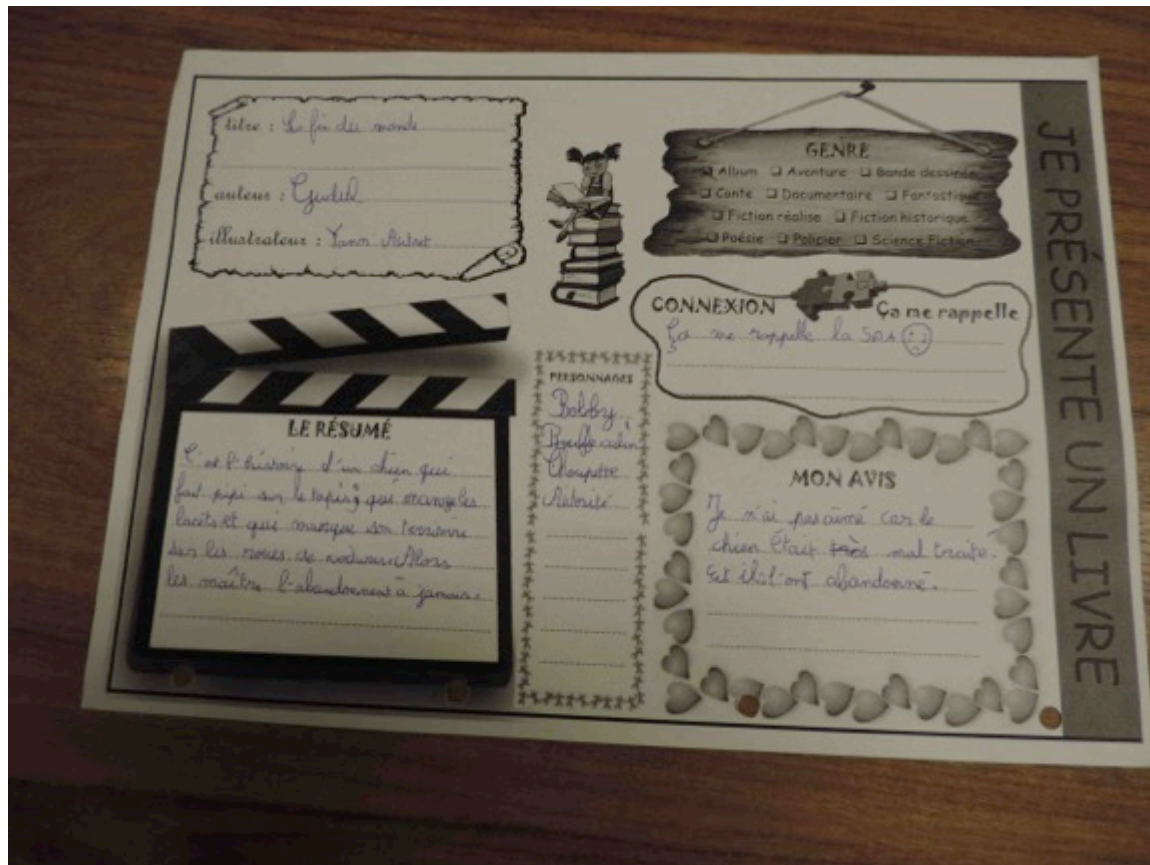 JE PRÉSENTE UN LIVRE
titre : La fin du monde
auteur : Gudule
illustrateur : Yann Autret
GENRE
Album Aventure Bande dessinée
Conte Documentaire Fantastique
Fiction réalise Fiction historique
Poésie Policier Science Fiction
CONNEXION Ça me rappelle
Ça me rappelle la SPA
LE RÉSUMÉ
C'est l'histoire d'un chien qui
fait pipi sur le tapis, qui mange les
lacets et qui marque son territoire
sur les roues de voitures. Alors
les maître l'abandonnent à jamais.
PERSONNAGES
Bobby
Choupette
Autorité
MON AVIS
Je n'ai pas aimé car le
chien était très mal traité.
Et ils l'ont abandonné.